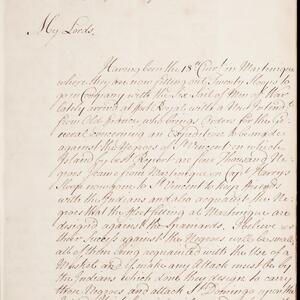 My Lords,
Having been the 18th Curt. in Martinique
where they are now fitting out Twenty Sloops to
go in Company with the Six Sail of Men of War
lately arrived at fort Royal, with a New Intend.t
from Old france who brings Orders for the Ge-
neral concerning an Expedition to be made
against the Negroes of St Vincent on which
Island by best Report are four Thousand Ne-
groes
Sloop now gone to St Vincent to keep friends
with the Indians and also acquaint the Ne-
groes that the fleet fitting at Martinique are
designed against the Spaniards. I believe
their Success against the Negroes will be small
all of them being acquainted with the Use of a
Musket and if make any Attack must be by
the Indians which done they design to carry
those Negroes and attack St Domingo upon the